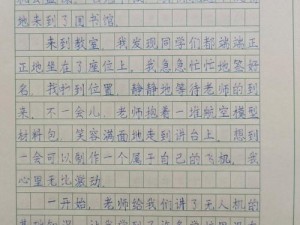 地来到了图书馆。
来到教室，我发现同学们都端端正
正地坐在了座位上。我急急忙忙地签好
名，找到位置，静静地等待老师的到
来。不一会儿，老师抱着一堆航空模型
材料包，笑容满面地走到讲台上。想到
一会可以制作一个属于自己的飞机，我
心里无比激动。
一开始，老师给我们讲了无人机的